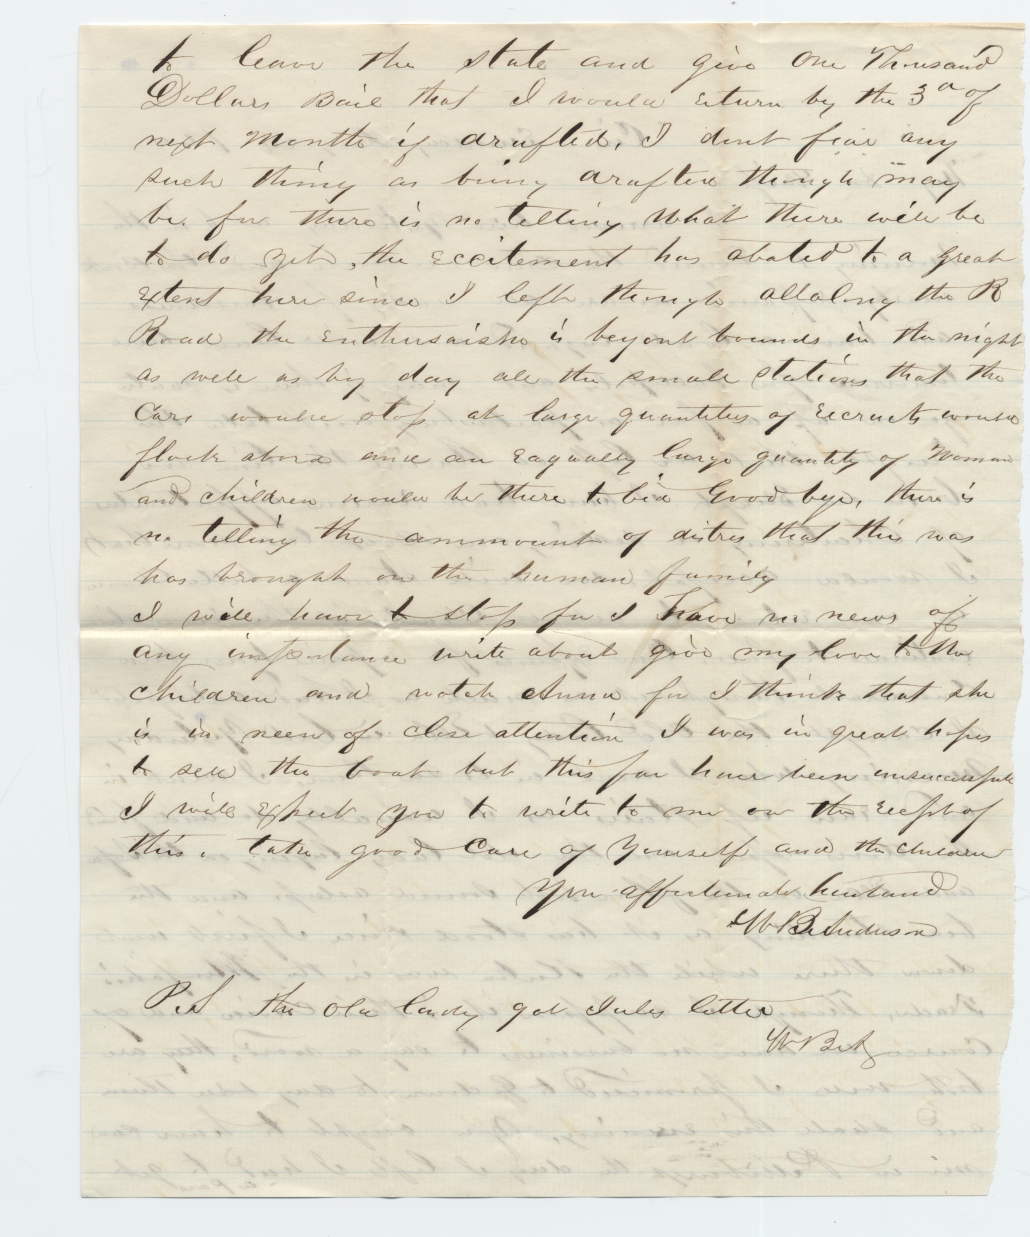 to leave the state and give One Thousand
Dollars Bail that I would return by the 3d of
next Month if drafted, I dont fear any
such thing as being drafted though may
be for there is no telling What there will be
to do yet, the Excitement has abated to a great
Extent here since I left though allalong the R
Road the Enthusaism is beyont bounds in the night
as well as by day all the small stations that the
Cars would stop at large quantities of recruits would
flock abord and an Eaqually large quantity of Women
and children would be there to bid Good bye, there is
no telling the ammount of distres that this war
has brought on the human family
I will have to stop for I have no news of
any importance write about give my love to the
children and watch Anna for I think that she
is in neen of close attention I was in great hopes
to sell the boat but thus far have been unsuccessfull
I will Expect you to write to me on the recept of
this. take good Care of Yourself and the children
Your affectionate husband
W B Anderson
P.S the old lady got Jules letter
W B